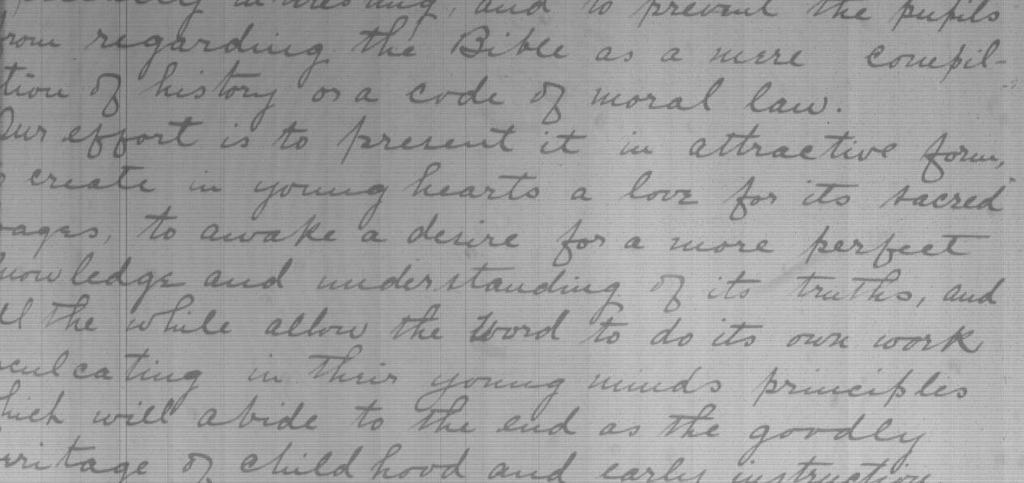 interesting, and to prevent the pupils
from regarding the Bible as a mere compil-
tion of history or a code of moral law.
Our effort is to present it in attractive form,
create in young hearts a love for its sacred
pages, to awake a desire for a more perfect
knowledge and understanding of its truths, and
all the while allow the Word to do its own work
inculcating in their young minds principles
which will abide to the end as the goodly
heritage of childhood and early instruction